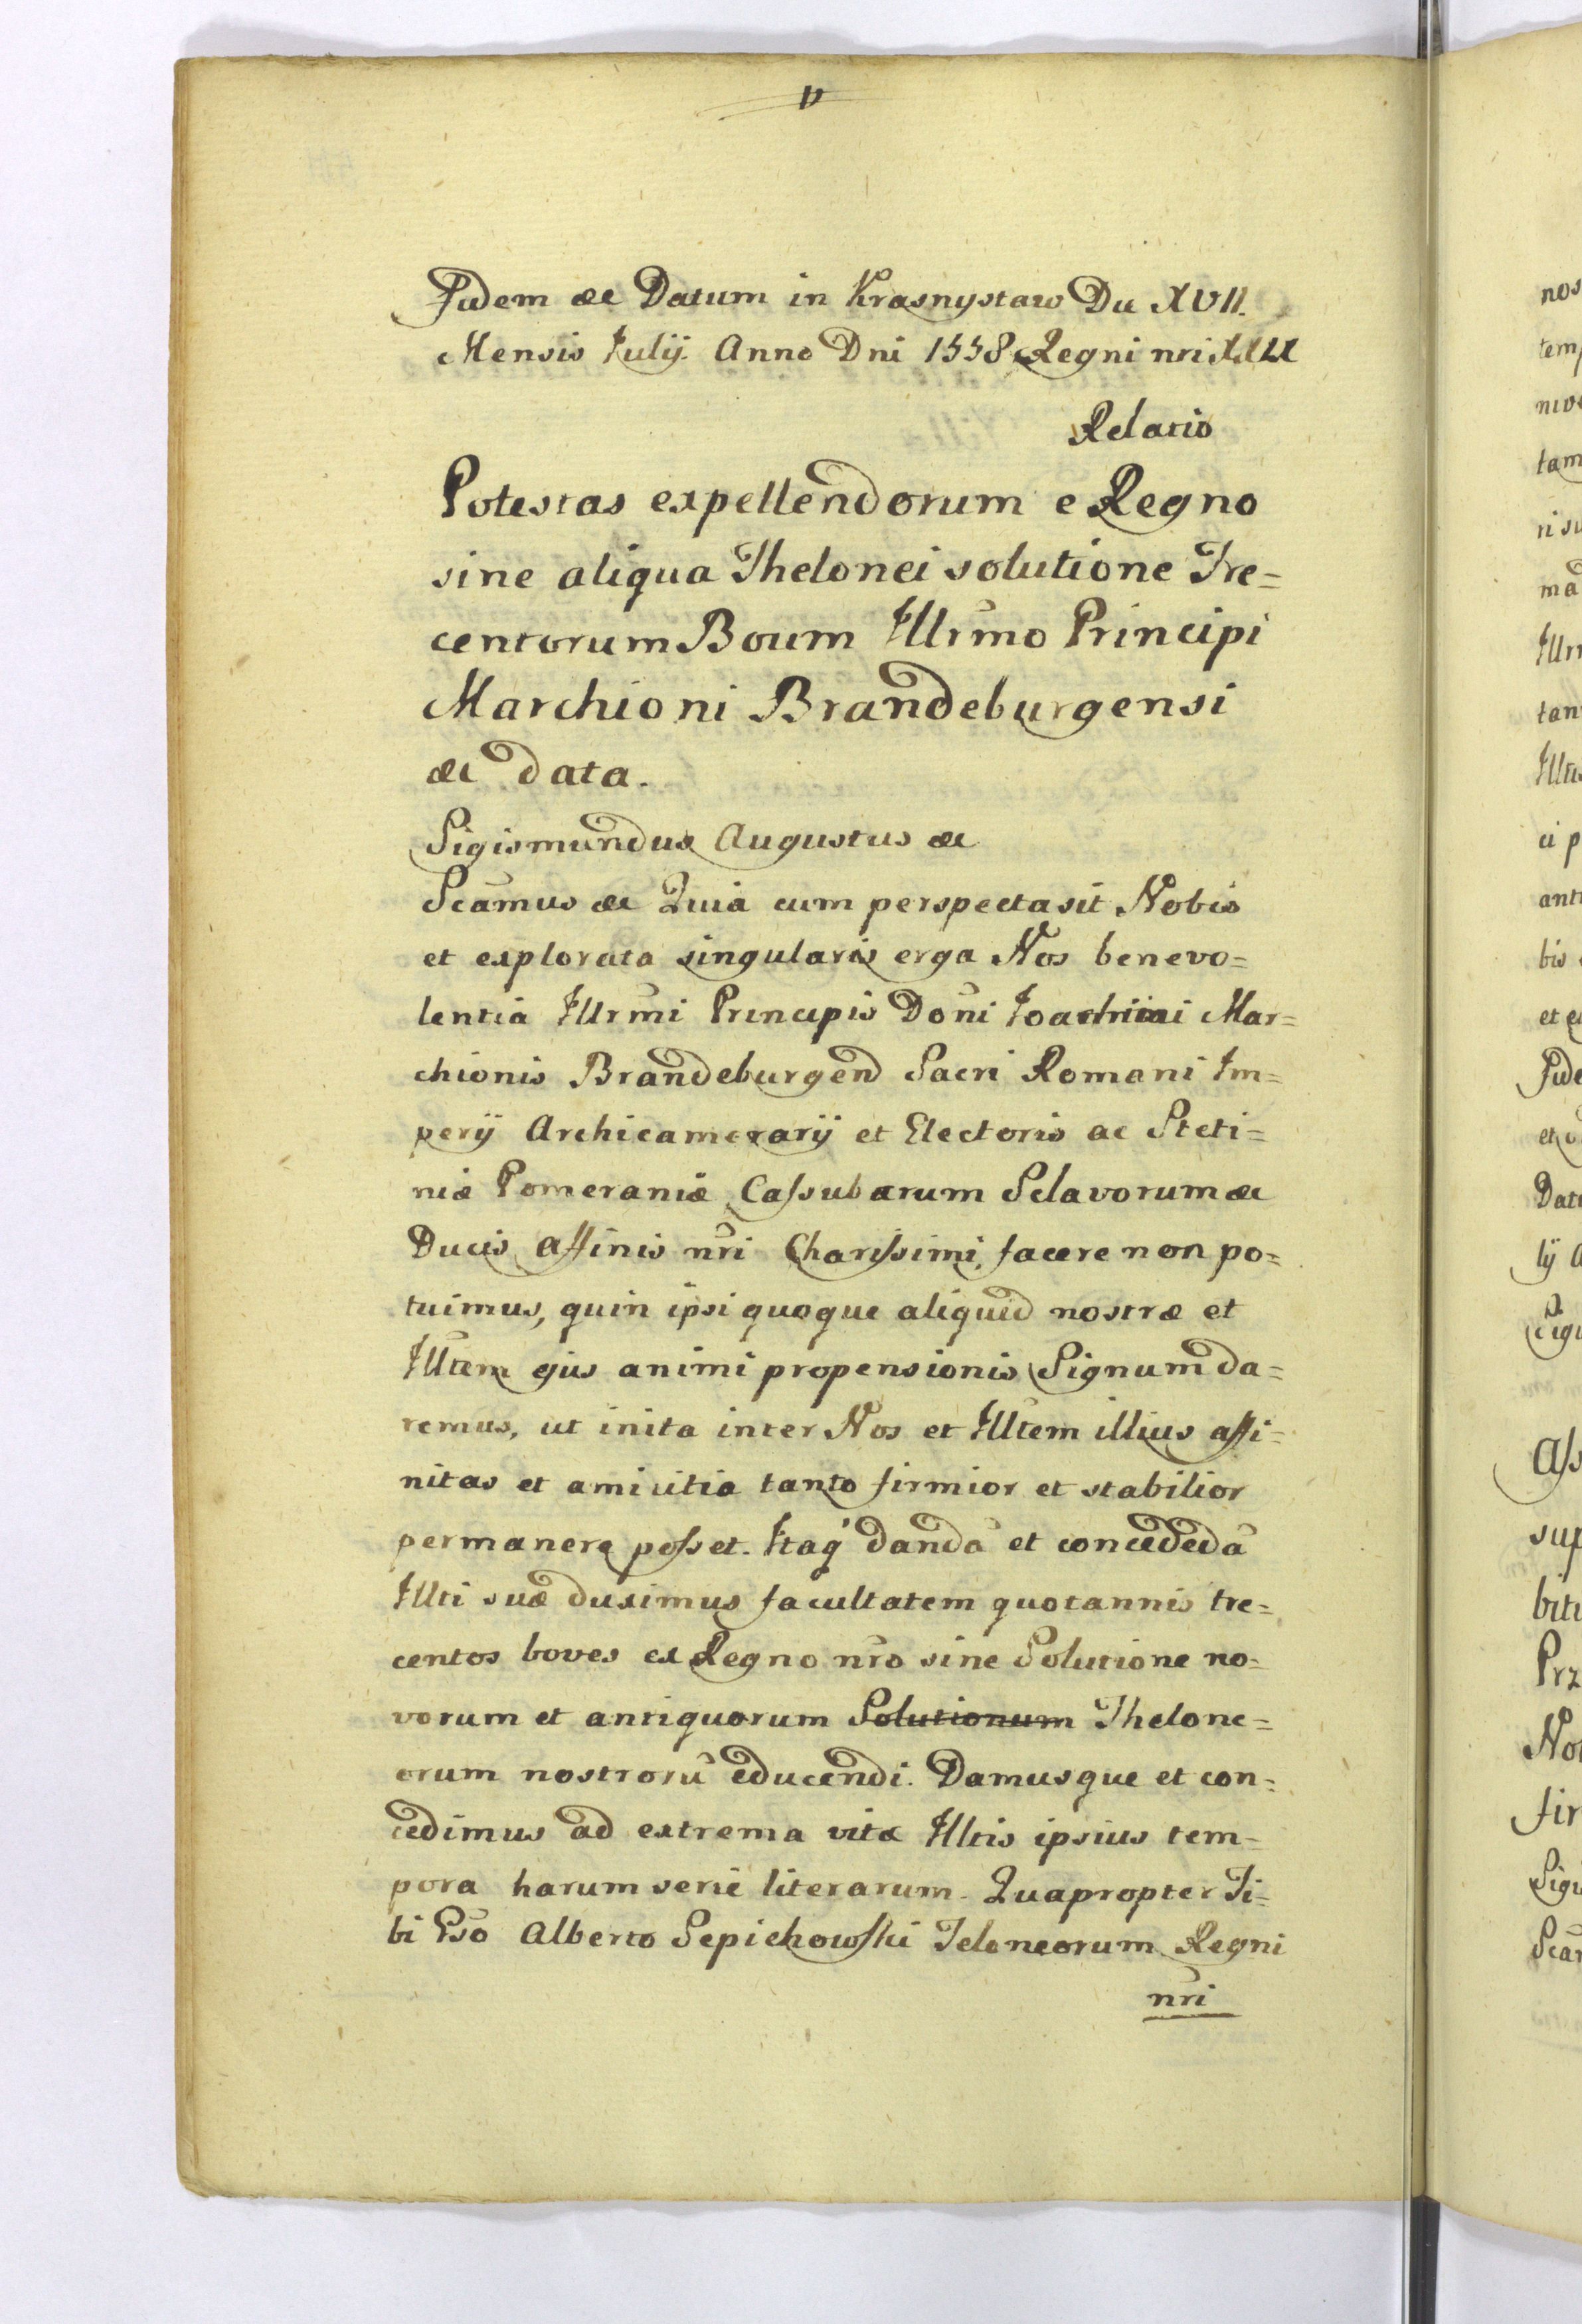 Fidem &c Datum in Krasnystaw Die XVII.
Mensis Julij. Anno Dni 1558 Regni nri XXIX
Relatio
Potestas expellendorum e Regno
sine aliqua Thelonei solutione Tre=
centorum Boum Illrmo Principi
Marchioni Brandeburgensi
&c data.
Sigismundus Augustus &c
Scamus &c Quia cum perspecta sit Nobis
et explorata singularis erga Nos benevo=
lentia Illrmi Principis Doni Joachimi Mar=
chionis Brandeburgend Sacri Romani Im=
perij Archicamerarij et Electoris ac Steti=
niæ Pomeraniæ Cassubarum Sclavorum &c
Ducis Affinis nri Charissimi, facere non po=
tuimus, quin ipsi quoque aliquid nostræ et
Illtem ejus animi propensionis Signum da=
remus, ut inita inter Nos et Illtem illius affi=
nitas et amicitia tanto firmior et stabilior
permanere posset. Itaq' danda et concededa
Illti suæ duximus facultatem quotannis tre=
centos boves ex Regno nro sine Solutione no=
vorum et antiquorum Solutionum Thelone=
orum nostroru educendi. Damusque et con=
cedimus ad extrema vitæ Illtis ipsius tem=
pora harum serie literarum. Quapropter Ti=
bi Gso Alberto Sepichowski Teloneorum Regni
nri